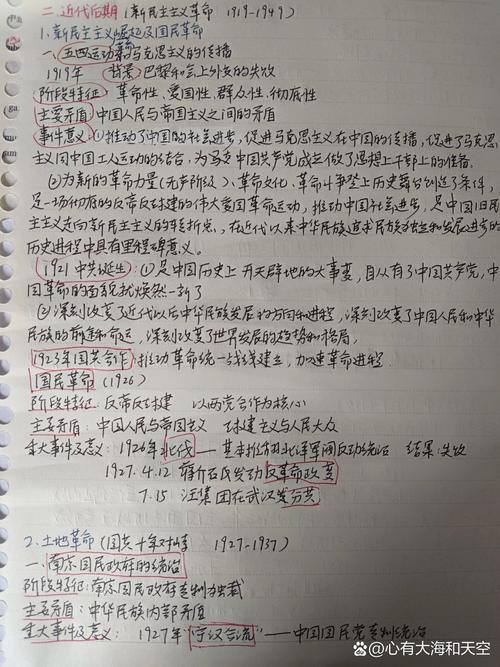 二、近代后期(新民主主义革命 1919-1949)
1、新民主主义崛起及国民革命
一、五四运动和马克思主义的传播
1919年 背景 巴黎和会上外交的失败
阶段特征:革命性、爱国性、群众性、彻底性
主要矛盾 中国人民与帝国主义之间的矛盾
事件意义:①推动了中国的社会进步,促进马克思主义在中国的传播,促进了马克思
主义同中国工人运动的结合,为马克 中国共产党成立做了思想上干部上的准备。
②为新的革命力量(无产阶级)、革命文化、革命斗争登上历史舞台创造了条件,
是一场彻底的反帝反封建的伟大爱国革命运动,推动中国社会进步,是中国旧民
主主义走向新民主主义的转折点,在近代以来中华民族追求民族独立和发展进步的
历史进程中具有里程碑意义。
1921中共诞生:①是中国历史上开天辟地的大事变,自从有了中国共产党,中
国革命的面貌就焕然一新了
②深刻改变了近代以后中华民族发展的方向和进程,深刻改变了中国人民和中华
民族的前途和命运,深刻改变了世界发展的趋势和格局。
1923年国共合作:推动革命统一战线建立,加速革命进程
国民革命(1926)
阶段特征:反帝反封建 以两党合作为核心
主要矛盾:中国人民与帝国主义 封建主义与人民大众
重大事件及意义:1926年北伐——基本推翻北洋军阀反动统治 结果:失败
1927.4.12 蒋介石发动反革命政变
7.15 汪集团在武汉发分共
2.土地革命(国共十年对峙 1927-1937)
一、南京国民政府的统治
阶段特征:南京国民政府专制独裁
主要矛盾:中华民族内部矛盾
重大事件及意义:1927年“宁汉合流”——中国国民党专制统治
@心有大海和天空